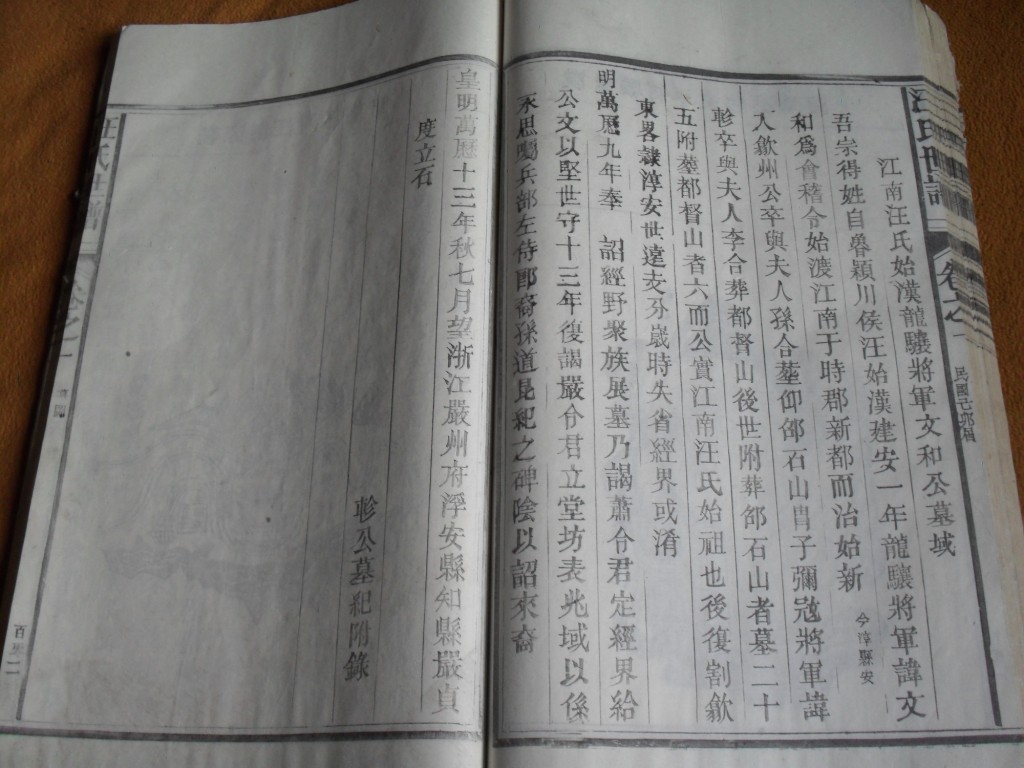 汪氏世譜
卷之一
江南汪氏始漢龍驤將軍文和公墓域
吾宗得姓自魯潁川侯汪始漢建安一年龍驤將軍諱文
和為會稽令始渡江南于時郡新都而治始新
今淳縣安
入歙州公卒與夫人孫合塟仰郃石山胄子彌冦將軍諱
䏴卒與夫人李合葬都督山後世附葬郃石山者墓二十
五附塟都督山者六而公實江南汪氏始祖也後復割歙
東畧隸淳安世遠支分歲時失省經界或淆
明萬曆九年奉 詔經野聚族展墓乃謁蕭令君定經界給
公文以堅世守十三年復謁嚴令君立堂坊表兆域以係
永思囑兵部左侍郎裔孫道昆紀之碑陰以詔來裔
皇明萬曆十三年秋七月望浙江嚴州府淳安縣知縣嚴貞
度立石
䏴公墓紀附錄
汪氏世譜
卷之一